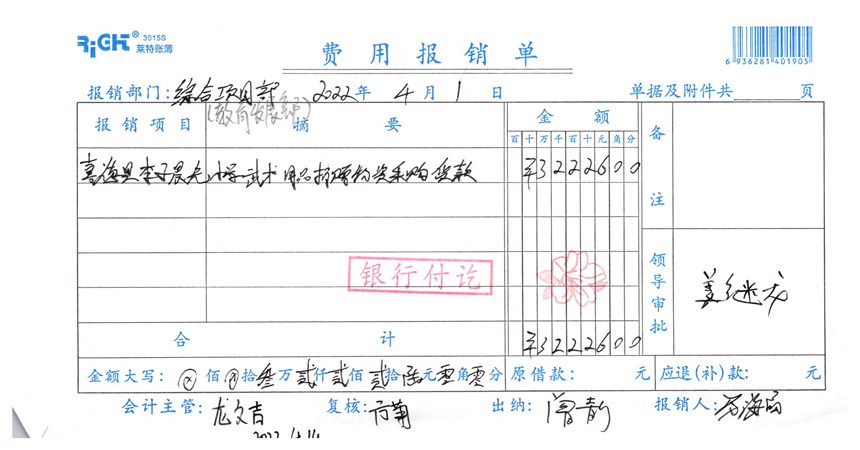 RiGHT® 3015S 莱特账簿
费用报销单
6 936281 401905
报销部门:综合项目部 2022年 4月1日 单据及附件共 页
(教育发展部)
报销项目 摘要 金额 备注
百十万千百十元角分
李子晨光小学武术用品捐赠物资采购货款 ¥3222600
银行付讫
领导审批 姜继龙
合计 ¥3222600
金额大写: ⊗佰 拾叁万贰仟贰佰贰拾陆元零角零分 原借款: 元 应退(补)款: 元
会计主管:龙文吉 复核:方菊 出纳:曾韵 报销人: